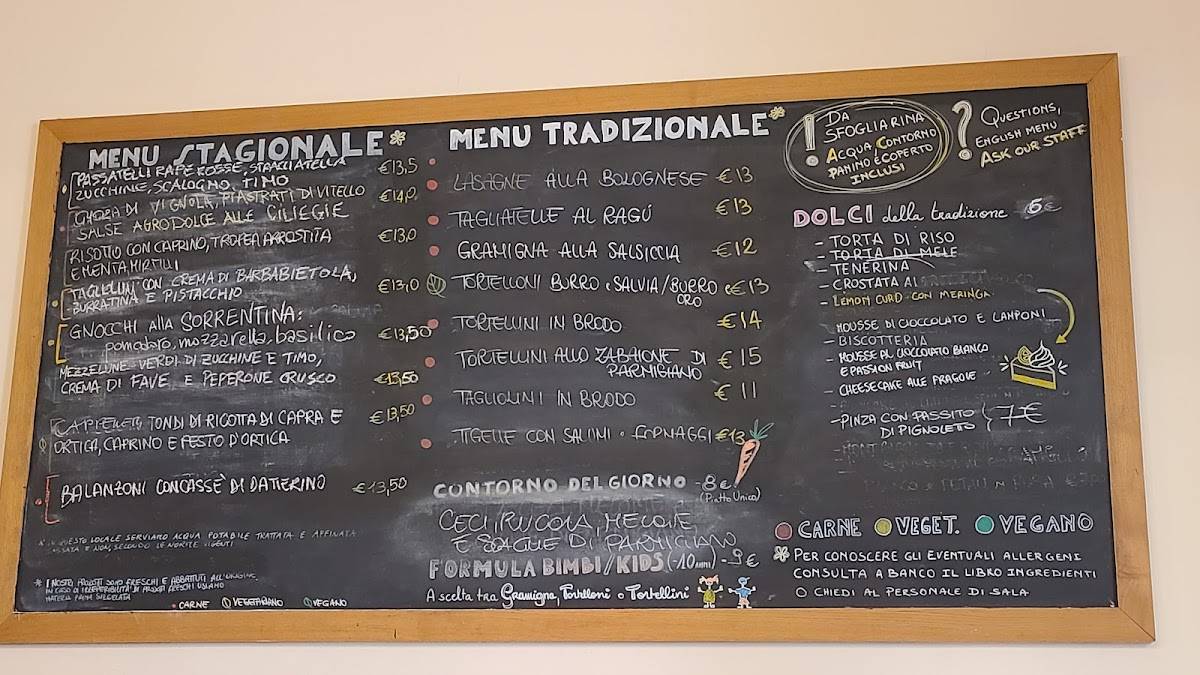 MENU STAGIONALE*
PASSATELLI RAPE ROSSE, STRACCIATELLA €13,5
ZUCCHINE, SCALOGNO, TIMO
DI VIGNOLA, PIASTRATI DI VITELLO €14,0
SALSE AGRODOLCE ALLE CILIEGIE
RISOTTO CON CAPRINO, TROPEA ARROSTITA €13,0
E MENTA, MIRTILLI
TAGLIOLINI CON CREMA DI BARBABIETOLA, €13,0
BURRATINA E PISTACCHIO
GNOCCHI alla SORRENTINA:
pomodoro, mozzarella, basilico €13,50
MEZZELUNE VERDI DI ZUCCHINE E TIMO,
CREMA DI FAVE E PEPERONE CRUSCO €13,50
TONDI DI RICOTTA DI CAPRA E €13,50
ORTICA, CAPRINO E PESTO D'ORTICA
BALANZONI CONCASSÈ DI DATTERINO €13,50
QUESTO LOCALE SERVIAMO ACQUA POTABILE TRATTATA E AFFINATA
E NON, SECONDO LE NORME VIGENTI
* I NOSTRI PRODOTTI SONO FRESCHI E ABBATTUTI ALL'ORIGINE
IN CASO DI IRREPERIBILITÀ DI PRODOTTI FRESCHI USIAMO
MATERIA PRIMA SURGELATA
CARNE VEGETARIANO VEGANO
MENU TRADIZIONALE*
LASAGNE ALLA BOLOGNESE €13
TAGLIATELLE AL RAGÚ €13
GRAMIGNA ALLA SALSICCIA €12
TORTELLONI BURRO e SALVIA/BURRO e €13
ORO
TORTELLINI IN BRODO €14
TORTELLINI ALLO ZABAIONE DI €15
PARMIGIANO
TAGLIOLINI IN BRODO €11
TIGELLE CON SALUMI e FORMAGGI €13
CONTORNO DEL GIORNO -8€
(Piatto Unico)
CECI, RUCOLA, MELONE
E SCAGLIE DI PARMIGIANO
FORMULA BIMBI/KIDS (-10 anni) -9€
A scelta tra Gramigna, Tortelloni o Tortellini
! DA
SFOGLIA RINA
ACQUA CONTORNO
PANINO E COPERTO
INCLUSI
? QUESTIONS,
ENGLISH MENU
ASK OUR STAFF
DOLCI della tradizione 6€
- TORTA DI RISO
- TORTA DI MELE
- TENERINA
- CROSTATA AI
- LEMON CURD CON MERINGA
- MOUSSE DI CIOCCOLATO E LAMPONI
- BISCOTTERIA
- MOUSSE AL CIOCCOLATO BIANCO
E PASSION FRUIT
CHEESECAKE ALLE FRAGOLE
- PINZA CON PASSITO 7€
DI PIGNOLETO
CARNE VEGET. VEGANO
* PER CONOSCERE GLI EVENTUALI ALLERGENI
CONSULTA A BANCO IL LIBRO INGREDIENTI
O CHIEDI AL PERSONALE DI SALA